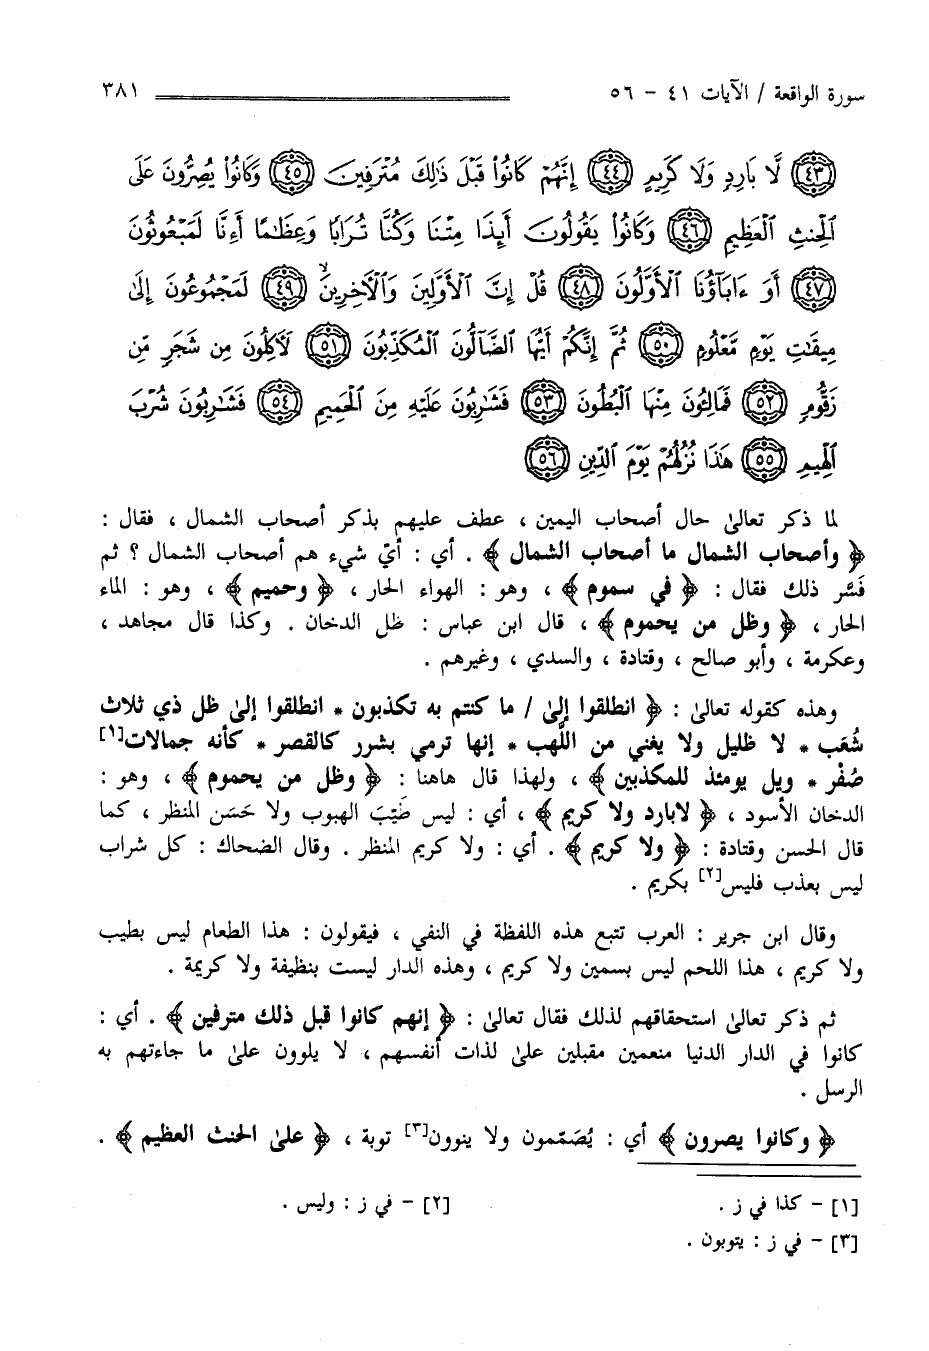 سورة الواقعة / الآيات ٤١ - ٥٦ ٣٨١
﴿٤٣﴾ لَّا بَارِدٍ وَلَا كَرِيمٍ ﴿٤٤﴾ إِنَّهُمْ كَانُوا۟ قَبْلَ ذَٰلِكَ مُتْرَفِينَ ﴿٤٥﴾ وَكَانُوا۟ يُصِرُّونَ عَلَى
ٱلْحِنثِ ٱلْعَظِيمِ ﴿٤٦﴾ وَكَانُوا۟ يَقُولُونَ أَئِذَا مِتْنَا وَكُنَّا تُرَابًا وَعِظَٰمًا أَءِنَّا لَمَبْعُوثُونَ
﴿٤٧﴾ أَوَ ءَابَآؤُنَا ٱلْأَوَّلُونَ ﴿٤٨﴾ قُلْ إِنَّ ٱلْأَوَّلِينَ وَٱلْآخِرِينَ ﴿٤٩﴾ لَمَجْمُوعُونَ إِلَىٰ
مِيقَٰتِ يَوْمٍ مَّعْلُومٍ ﴿٥٠﴾ ثُمَّ إِنَّكُمْ أَيُّهَا ٱلضَّآلُّونَ ٱلْمُكَذِّبُونَ ﴿٥١﴾ لَآكِلُونَ مِن شَجَرٍ مِّن
زَقُّومٍ ﴿٥٢﴾ فَمَالِـُٔونَ مِنْهَا ٱلْبُطُونَ ﴿٥٣﴾ فَشَٰرِبُونَ عَلَيْهِ مِنَ ٱلْحَمِيمِ ﴿٥٤﴾ فَشَٰرِبُونَ شُرْبَ
ٱلْهِيمِ ﴿٥٥﴾ هَٰذَا نُزُلُهُمْ يَوْمَ ٱلدِّينِ ﴿٥٦﴾
لما ذكر تعالىٰ حال أصحاب اليمين ، عطف عليهم بذكر أصحاب الشمال ، فقال :
﴿ وأصحاب الشمال ما أصحاب الشمال ﴾ . أي : أيّ شيء هم أصحاب الشمال ؟ ثم
فَسَّر ذلك فقال : ﴿ في سموم ﴾ ، وهو : الهواء الحار ، ﴿ وحميم ﴾ ، وهو : الماء
الحار ، ﴿ وظل من يحموم ﴾ ، قال ابن عباس : ظل الدخان . وكذا قال مجاهد ،
وعكرمة ، وأبو صالح ، وقتادة ، والسدي ، وغيرهم .
وهذه كقوله تعالىٰ : ﴿ انطلقوا إلىٰ / ما كنتم به تكذبون * انطلقوا إلىٰ ظل ذي ثلاث
شُعَب * لا ظليل ولا يغني من اللَّهب * إنها ترمي بشرر كالقصر * كأنه جمالات[١]
صُفْر * ويل يومئذ للمكذبين ﴾ ، ولهذا قال هاهنا : ﴿ وظل من يحموم ﴾ ، وهو :
الدخان الأسود ، ﴿ لابارد ولا كريم ﴾ ، أي : ليس طَيِّبَ الهبوب ولا حَسَن المنظر ، كما
قال الحسن وقتادة : ﴿ ولا كريم ﴾ . أي : ولا كريم المنظر . وقال الضحاك : كل شراب
ليس بعذب فليس[٢] بكريم .
وقال ابن جرير : العرب تتبع هذه اللفظة في النفي ، فيقولون : هذا الطعام ليس بطيب
ولا كريم ، هذا اللحم ليس بسمين ولا كريم ، وهذه الدار ليست بنظيفة ولا كريمة .
ثم ذكر تعالىٰ استحقاقهم لذلك فقال تعالىٰ : ﴿ إنهم كانوا قبل ذلك مترفين ﴾ . أي :
كانوا في الدار الدنيا منعمين مقبلين علىٰ لذات أنفسهم ، لا يلوون علىٰ ما جاءتهم به
الرسل .
﴿ وكانوا يصرون ﴾ أي : يُصَمّمون ولا ينوون[٣] توبة ، ﴿ علىٰ الحنث العظيم ﴾ .
[١] - كذا في ز . [٢] - في ز : وليس .
[٣] - في ز : يتوبون .